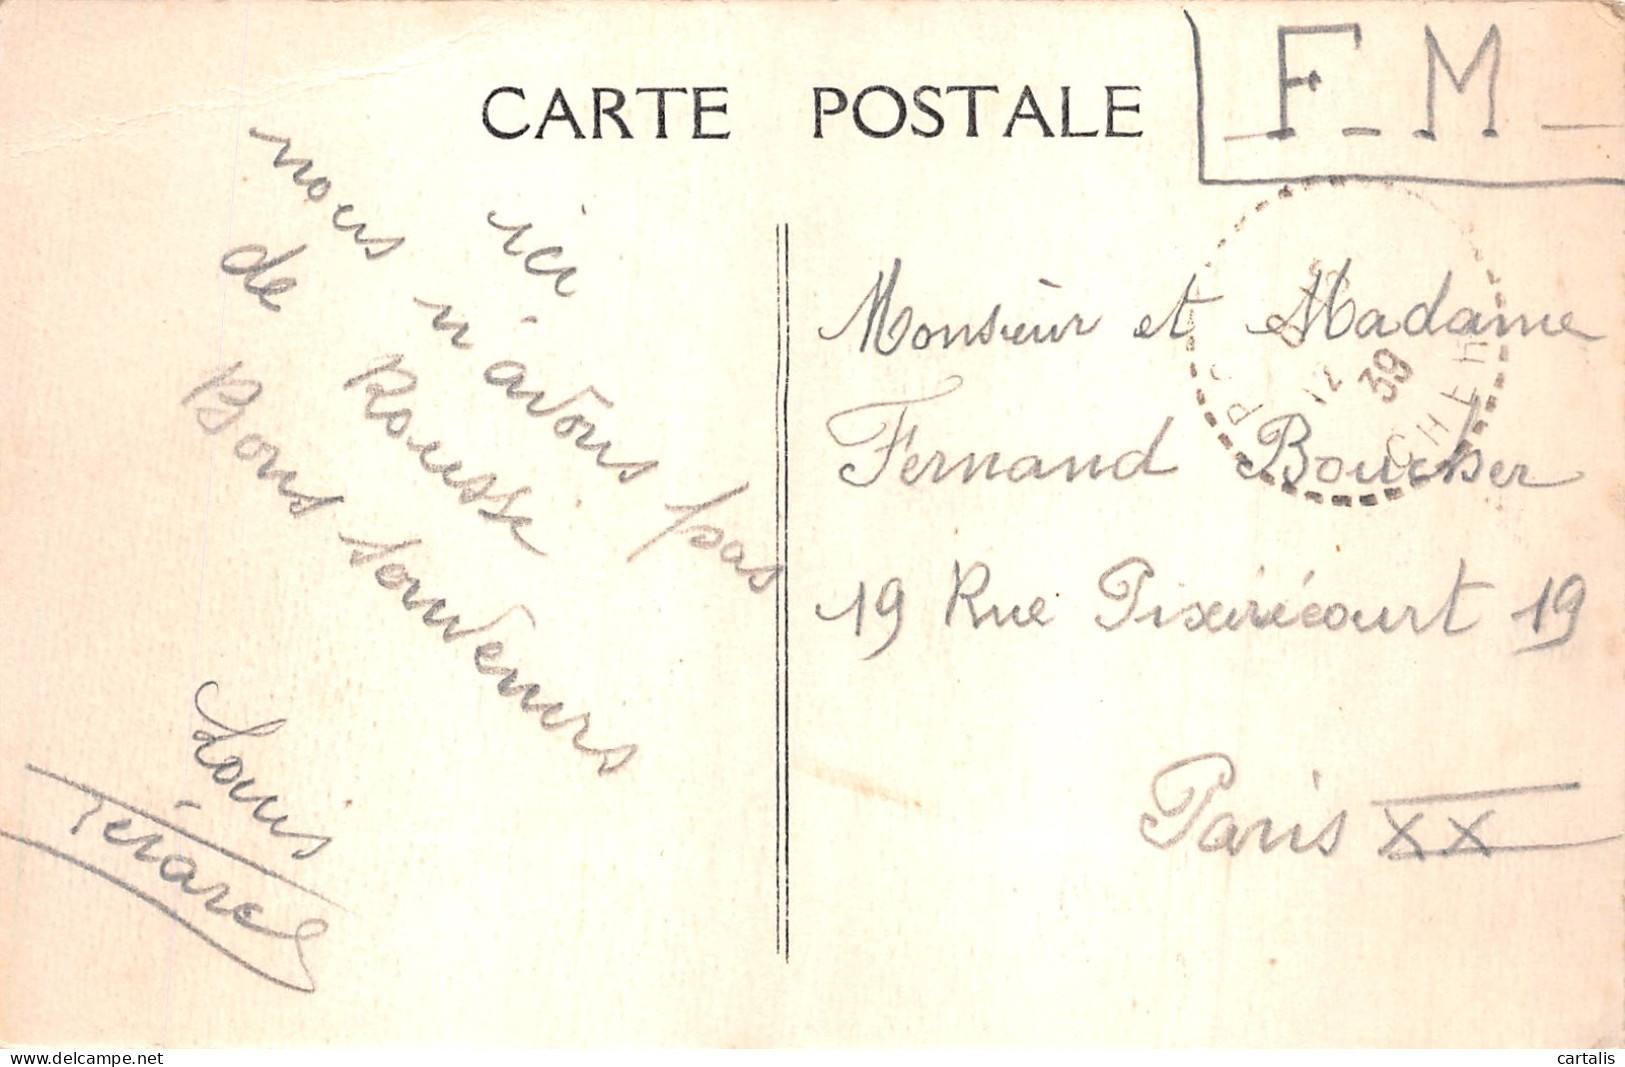 CARTE POSTALE
F.M
ici
nous n'avons pas
de Rousse
Bons souvenirs
Louis
Monsieur et Madame
Fernand Boucher
19 Rue Pixérécourt 19
Paris XX
12
39
CHER
delcampe.net
cartalis